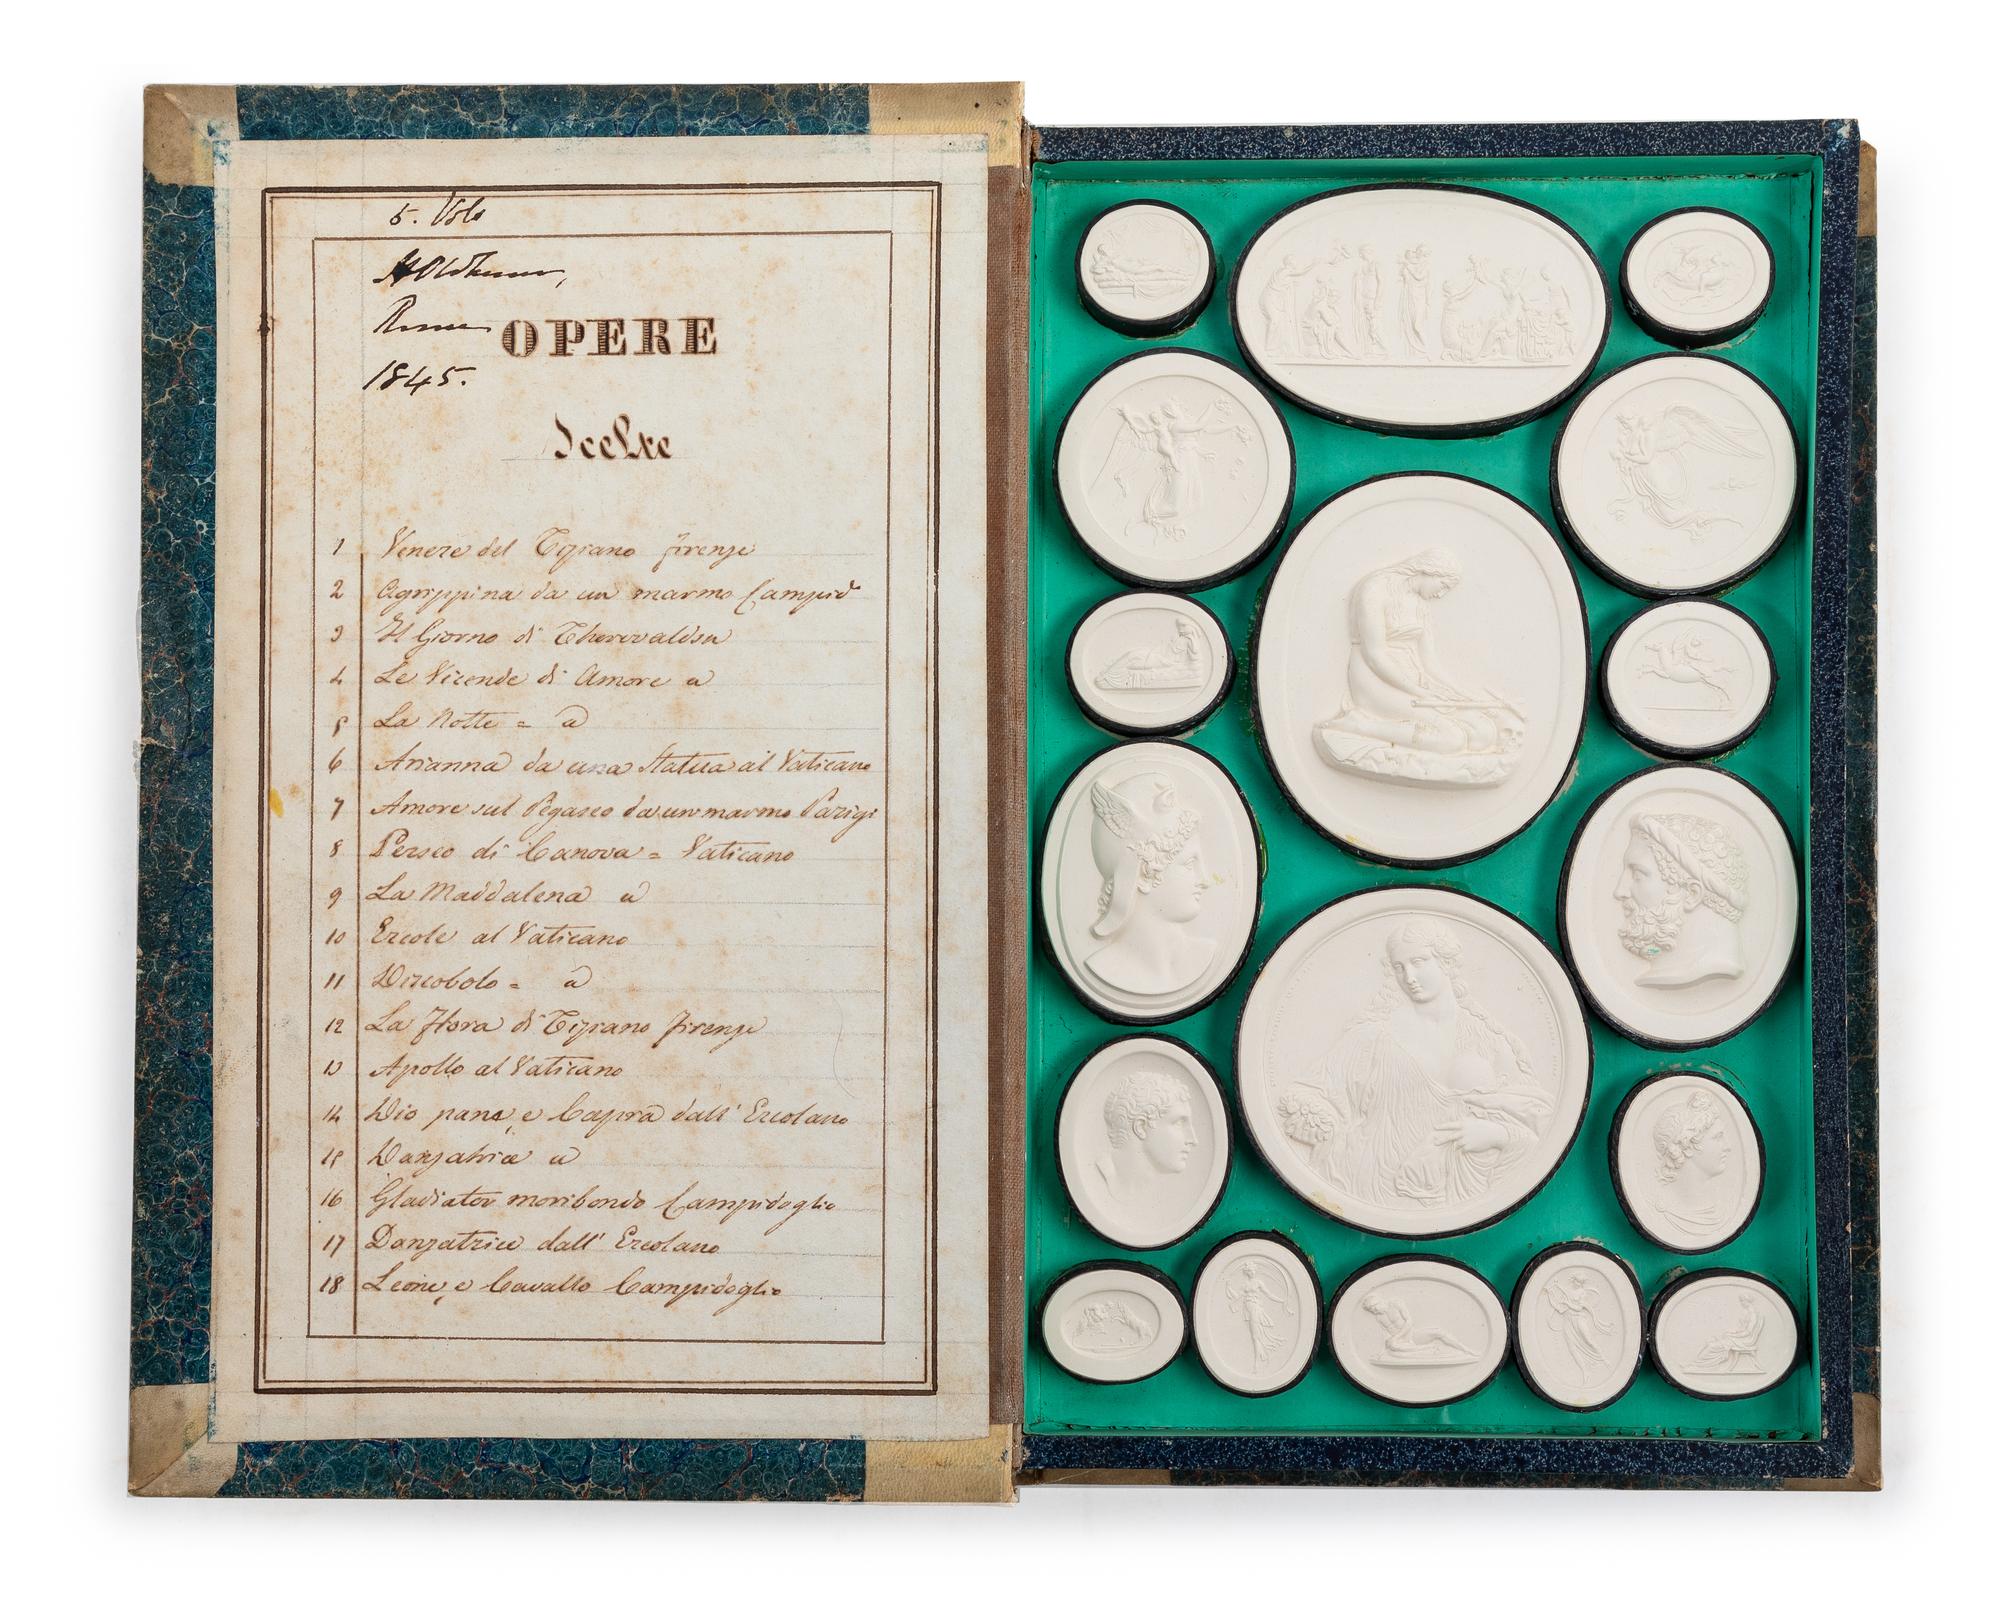 5. Vols
Rome
1845.
OPERE
Scelte
1 Venere del Tiziano firenze
2 Agrippina da un marmo Campid
3 Il Giorno di Thorvaldsen
4 Le Vicende di Amore a
5 La Notte = a
6 Arianna da una statua al Vaticano
7 Amore sul Pegaseo da un marmo Parigi
8 Perseo di Canova = Vaticano
9 La Maddalena a
10 Ercole al Vaticano
11 Discobolo = a
12 La Flora di Tiziano firenze
13 Apollo al Vaticano
14 Dio pane, e Capra dall' Ercolano
15 Danzatrice a
16 Gladiator moribondo Campidoglio
17 Danzatrice dall' Ercolano
18 Leone, e Cavallo Campidoglio